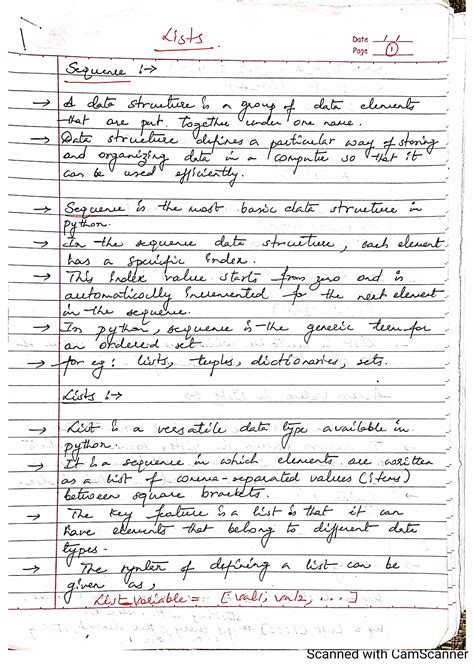 Lists
Date / /
Page 1
Sequence :→
→ A data structure is a group of data elements
that are put together under one name.
→ Data structure defines a particular way of storing
and organizing data in a computer so that it
can be used efficiently.
→ Sequence is the most basic data structure in
python.
→ In the sequence data structure, each element
has a specific index.
→ This index value starts from zero and is
automatically incremented for the next element
in the sequence.
→ In python, sequence is the generic term for
an ordered set.
→ for eg: lists, tuples, dictionaries, sets.
Lists :→
→ List is a versatile data type available in
python.
→ It is a sequence in which elements are written
as a list of comma-separated values (items)
between square brackets.
→ The key feature is a list is that it can
have elements that belong to different data
types.
→ The syntax of defining a list can be
given as,
List variable = [val1, val2, ...]
Scanned with CamScanner